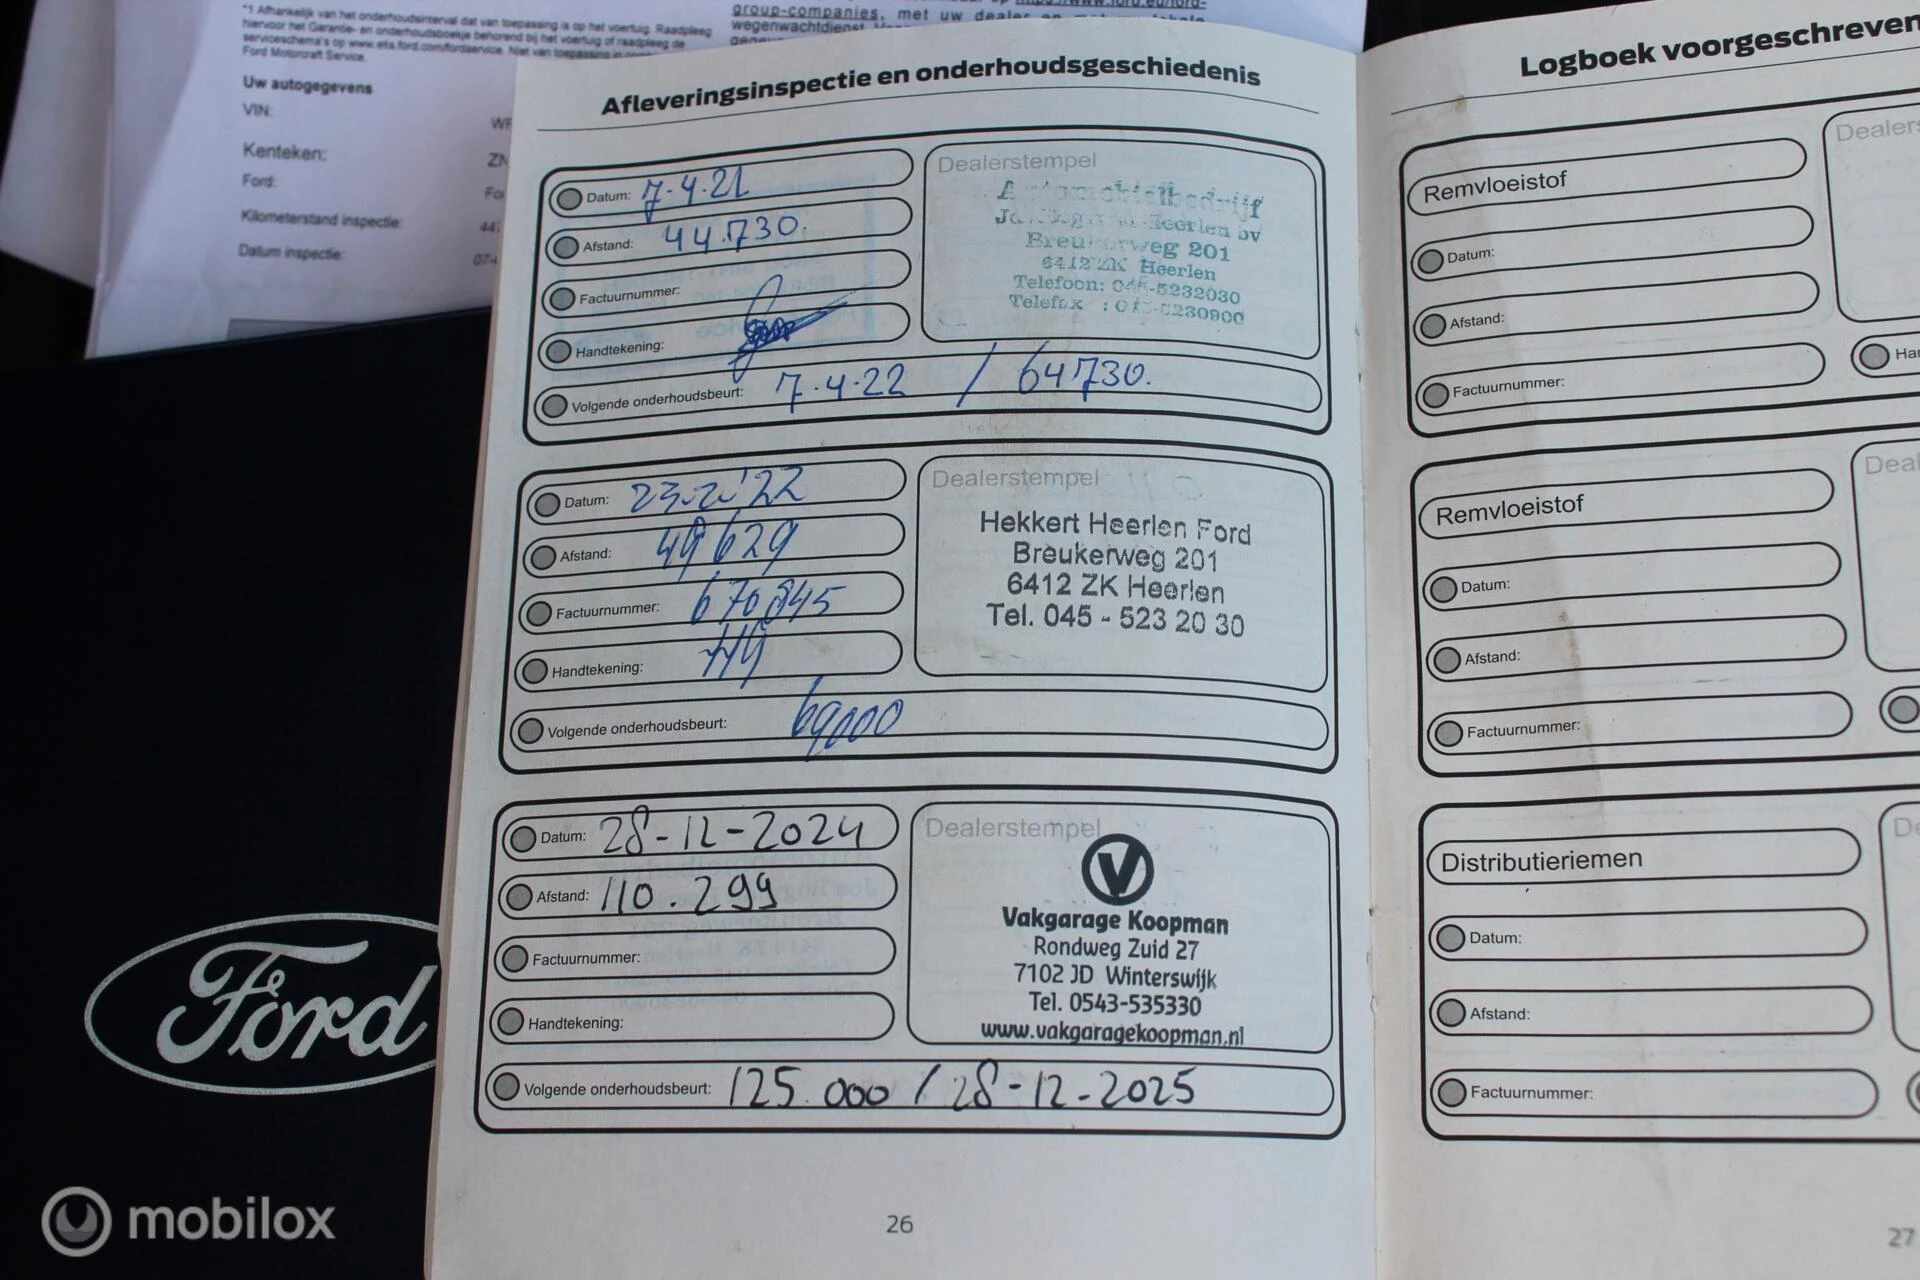 *1 Afhankelijk van het onderhoudsinterval dat van toepassing is op het voertuig. Raadpleeg
hiervoor het Garantie- en onderhoudsboekje behorend bij het voertuig of raadpleeg de
serviceschema's op www.etis.ford.com/fordservice. Niet van toepassing in
Ford Motorcraft Service.
Uw autogegevens
VIN:
Kenteken:
ZN
Ford:
Fo
Kilometerstand inspectie:
447
Datum inspectie:
074
group-companies, met uw dealer
wegenwachtdienst
Afleveringsinspectie en onderhoudsgeschiedenis
Datum: 7-4-21
Afstand: 44.730.
Factuurnummer:
Handtekening:
Volgende onderhoudsbeurt: 7-4-22 / 64730.
Dealerstempel
Automobielbedrijf
Heerlen bv
Breukerweg 201
6412 ZK Heerlen
Telefoon: 045-5232030
Telefax : 045-5230900
Datum: 23-2-'22
Afstand: 49629
Factuurnummer: 670845
Handtekening:
Volgende onderhoudsbeurt: 69000
Dealerstempel
Hekkert Heerlen Ford
Breukerweg 201
6412 ZK Heerlen
Tel. 045 - 523 20 30
Datum: 28-12-2024
Afstand: 110.299
Factuurnummer:
Handtekening:
Volgende onderhoudsbeurt: 125.000 / 28-12-2025
Dealerstempel
V
Vakgarage Koopman
Rondweg Zuid 27
7102 JD Winterswijk
Tel. 0543-535330
www.vakgaragekoopman.nl
26
Logboek voorgeschreven
Remvloeistof
Datum:
Afstand:
Factuurnummer:
Dealers
Han
Remvloeistof
Datum:
Afstand:
Factuurnummer:
Deal
Distributieriemen
Datum:
Afstand:
Factuurnummer:
De
27
Ford
mobilox